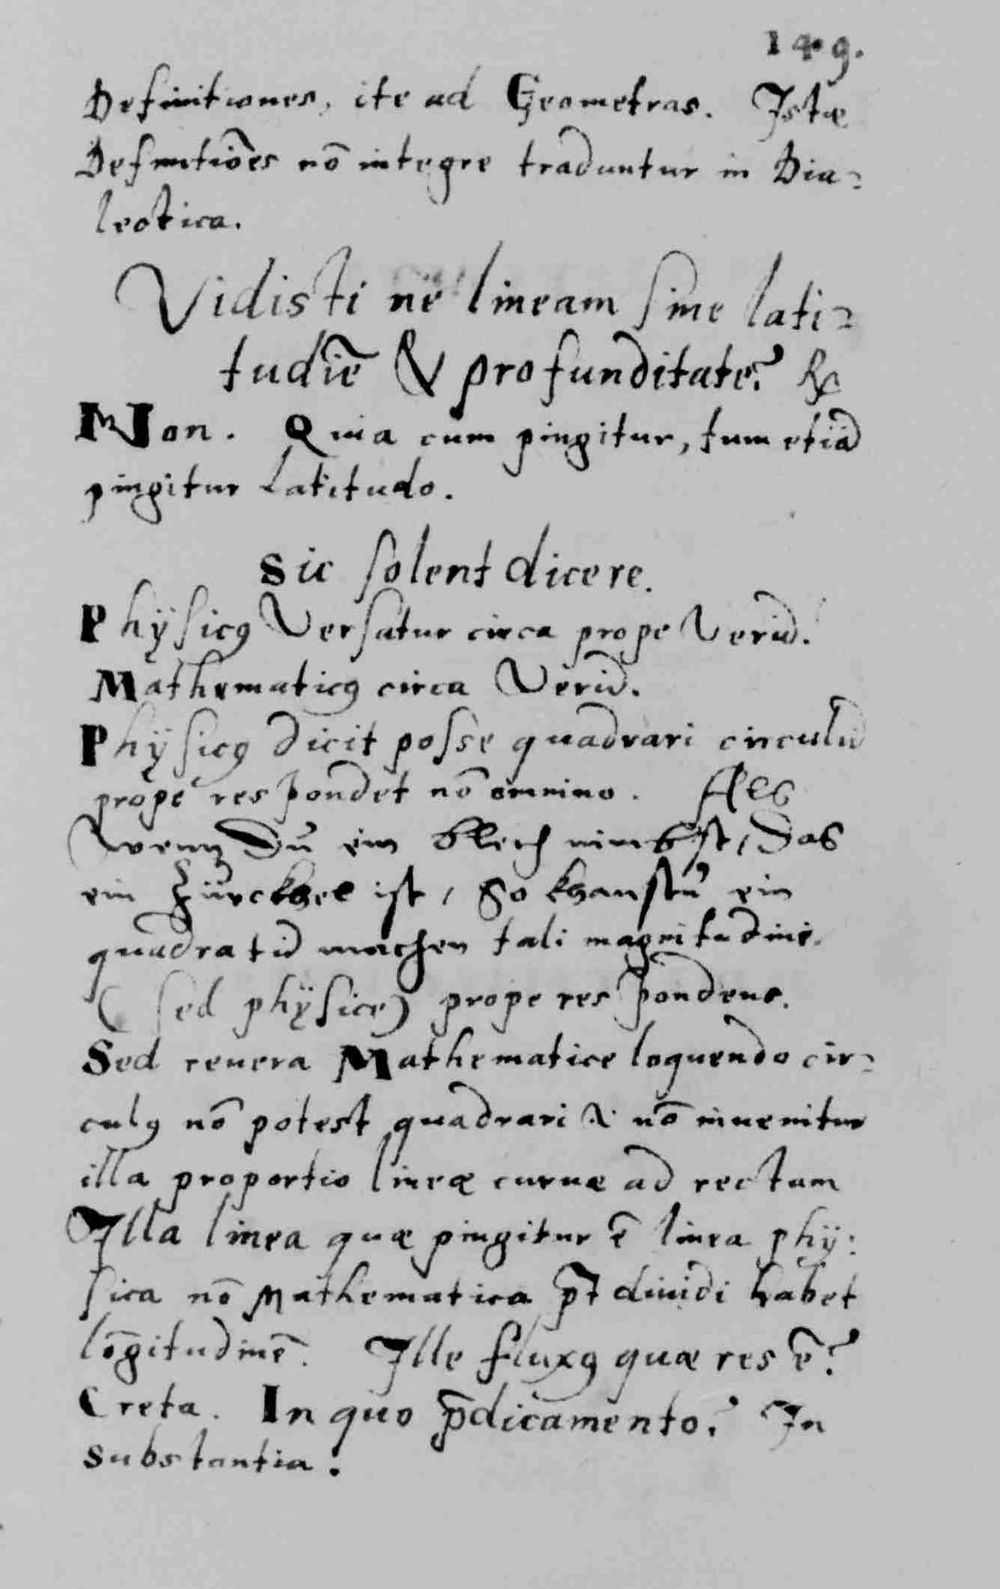 149.
Definitiones, ite ad Geometras. Istæ
Definitiōēs nō integre traduntur in Dia=
lectica.
Vidisti nē lineam sine lati=
tudīē & profunditate? ℞
Non. Quia cum pingitur, tum etiā
pingitur Latitudo.
Sic solent dicere.
Phÿsicꝰ Versatur circa prope Verū.
Mathematicꝰ circa Verū.
Phÿsicꝰ dicit posse quadrari circulū
prope respondet nō omnino. Als
wenn Dŭ ein blech nimbst, das
ein Zürckhel ist, So khanstŭ ein
quadratū machen tali magnitudine.
(sed phÿsice) prope respondens.
Sed revera Mathematice loquendo cir=
culꝰ nō potest quadrari & nō invenitur
illa proportio lineæ curvæ ad rectam
Illa linea quæ pingitur ē linea phÿ:
sica nō Mathematica p̄t dividi habet
lōgitudinē. Ille fluxꝰ quæ res ē?
Creta. In quo p̄dicamento? In
substantia.